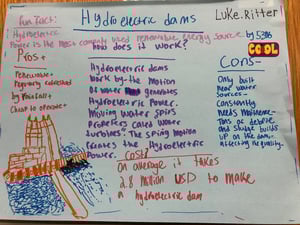 Fun Fact:
Hydroelectric dams
Luke.Ritter
Hydroelectric
Power is the most commonly used renewable energy source
by 5286
COOL
How does it work?
Pros+
Renewable+
Regularly
by Rainfall+
Cheap to operate+
Hydroelectric dams
work by the motion
of water generates
Hydroelectric Power.
Moving water spins
Propellers called water
turbines". The spinning motion
creates the Hydroelectric
Power.
Cons-
Only built
near water
sources-
Constantly
needs maintenence-
tons of debris
and sludge builds
up on the dam-
affecting its quality-
Cost?
On average it takes
2.8 million USD to make
a hydroelectric dam